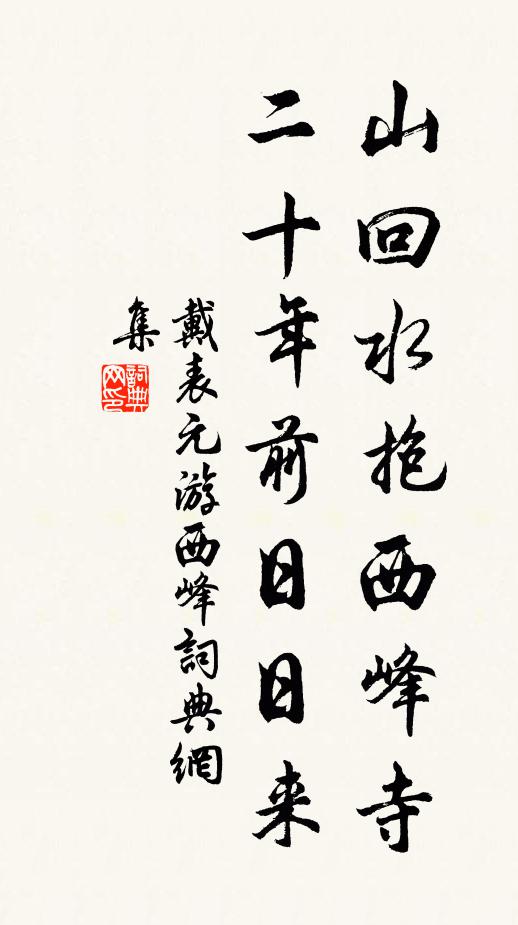 山回水抱西峰寺
二十年前日日来
戴表元游西峰詞典網
集
詞典
网印